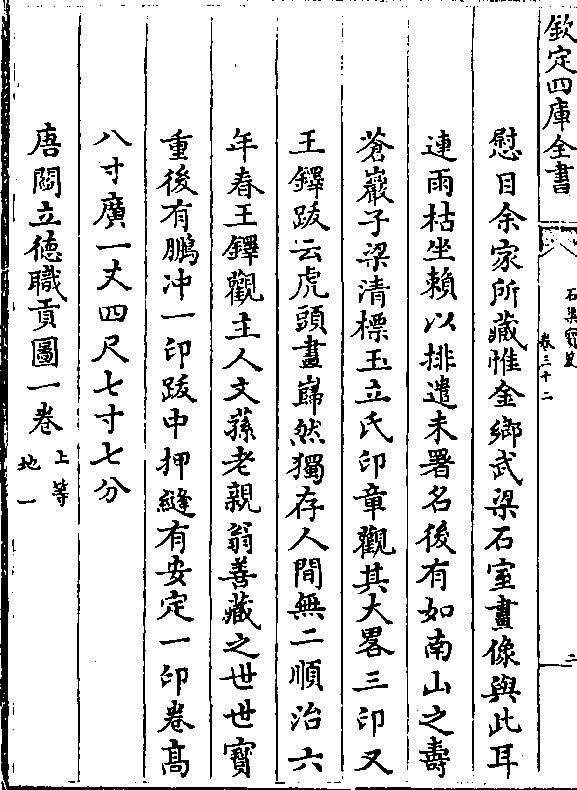 欽定四庫全書
石渠寶笈
卷三十二
二
慰目余家所藏惟金鄉武梁石室畫像與此耳
連雨枯坐賴以排遣未署名後有如南山之壽
蒼巖子梁清標玉立氏印章觀其大畧三印又
王鐸跋云虎頭畫巋然獨存人間無二順治六
年春王鐸觀主人文蓀老親翁善藏之世世寳
重後有鵬冲一印跋中押縫有安定一印卷髙
八寸廣一丈四尺七寸七分
唐閻立徳職貢圖一卷 上等 地一